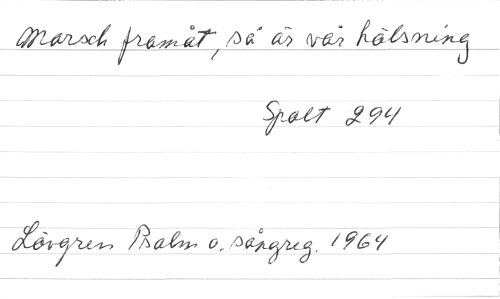 Marsch framåt, så är vår hälsning
Spalt 294
Lövgren Psalm o. sångreg. 1964